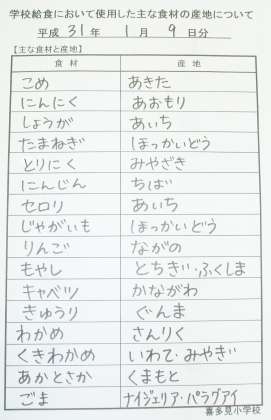 学校給食において使用した主な食材の産地について
平成 31 年 1 月 9 日分
【主な食材と産地】
食材 産地
こめ あきた
にんにく あおもり
しょうが あいち
たまねぎ ほっかいどう
とりにく みやざき
にんじん ちば
セロリ あいち
じゃがいも ほっかいどう
りんご ながの
もやし とちぎ・ふくしま
キャベツ かながわ
きゅうり ぐんま
わかめ さんりく
くきわかめ いわて・みやぎ
あかとさか くまもと
ごま ナイジェリア・パラグアイ
喜多見小学校